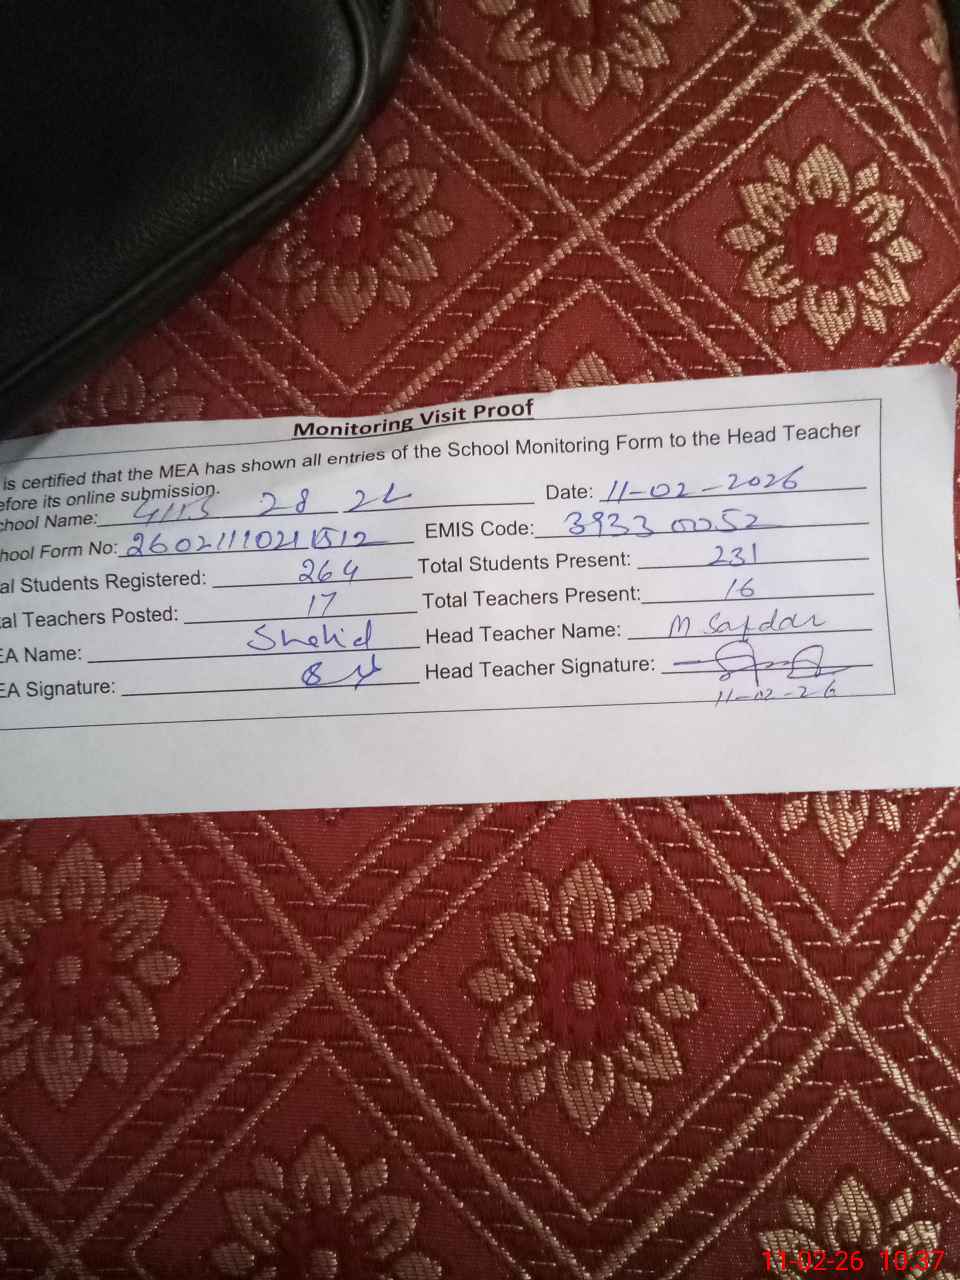 Monitoring Visit Proof
is certified that the MEA has shown all entries of the School Monitoring Form to the Head Teacher
efore its online submission.
chool Name: 28 Date: 11-02-2026
hool Form No: EMIS Code: 39330052
al Students Registered: 264 Total Students Present: 231
al Teachers Posted: 17 Total Teachers Present: 16
EA Name: Shahid Head Teacher Name: M Safdar
EA Signature: Head Teacher Signature:
11-02-26
11-02-26 10:37